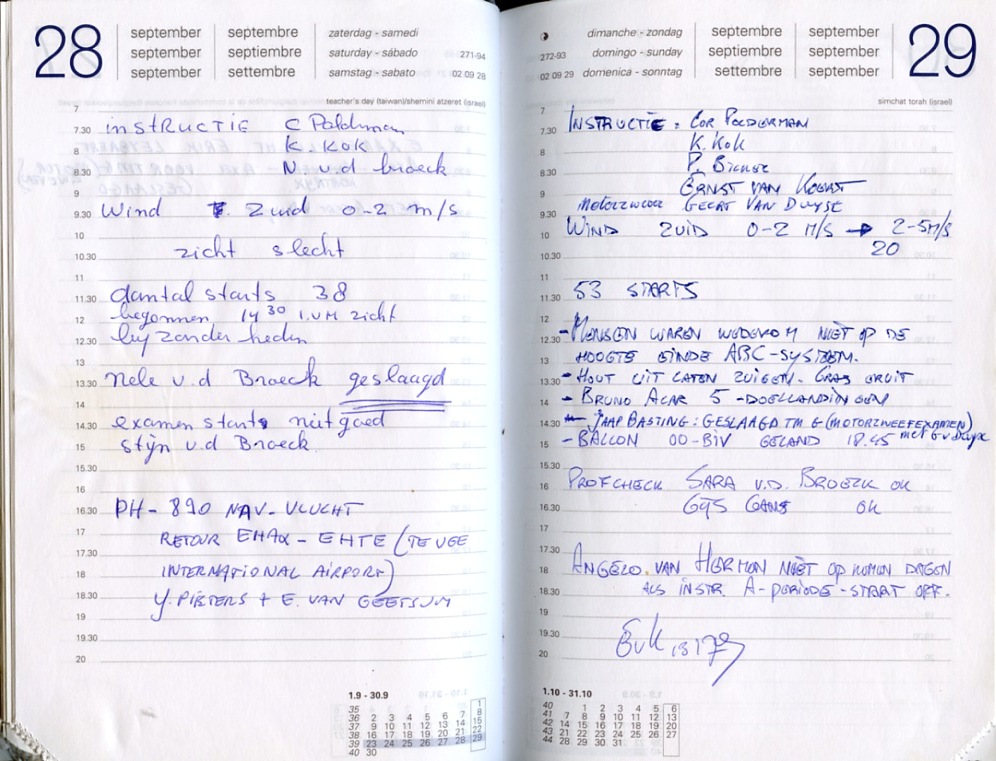 28
september septembre
september septiembre
september settembre
zaterdag - samedi
saturday - sábado 271-94
samstag - sabato 02 09 28
teacher's day (taiwan)/shemini atzeret (israel)
7
7.30 instructie C Poldermn
8 K. Kok
8.30 N v.d broeck
9
9.30 Wind Zuid 0-2 m/s
10
zicht slecht
10.30
11
11.30 aantal starts 38
12 begonnen 14 30 i.v.m zicht
12.30 byzonderheden
13
13.30 nele v.d Broeck geslaagd
14
14.30 examen starts niet goed
15 stijn v.d Broeck
15.30
16
16.30 PH- 890 NAV-VLUCHT
17
17.30 RETOUR EHAX - EHTE (TEUGE
18 INTERNATIONAL AIRPORT)
18.30 Y. PIETERS + E. VAN GEETSUM
19
19.30
20
1.9 - 30.9
35 1
36 2 3 4 5 6 7 8
37 9 10 11 12 13 14 15
38 16 17 18 19 20 21 22
39 23 24 25 26 27 28 29
40 30
29
272-93
02 09 29
dimanche - zondag
domingo - sunday
domenica - sonntag
septembre september
septiembre september
settembre september
simchat torah (israel)
7
7.30 INSTRUCTIE: COR POLDERMAN
8 K. Kok
8.30 P.
9 ERNST VAN
MOTORZWEVER GEERT VAN DUYSE
9.30
10 WIND ZUID 0-2 M/S → 2-5M/S
20
10.30
11
11.30 53 STARTS
12
12.30 - MENSEN WAREN WEDEROM NIET OP DE
13 HOOGTE EINDE ABC-SYSTEEM.
13.30 - HOUT UIT LATEN ZUIGEN. GRAS ERUIT
14 - BRUNO ACAR 5-DOELLANDINGEN
14.30 - JAAP BASTING: GESLAAGD TMG (MOTORZWEEFEXAMEN)
15 - BALLON OO-BIV GELAND 18.45 met G v Duyse
15.30
16 PROFCHECK SARA V.D. BROECK OK
16.30 GIJS GANS OK
17
17.30
18 ANGELO VAN HERMON NIET OP KOMEN DAGEN
18.30 ALS INSTR. A-PERIODE-START OFF.
19
19.30
20
1.10 - 31.10
40 1 2 3 4 5 6
41 7 8 9 10 11 12 13
42 14 15 16 17 18 19 20
43 21 22 23 24 25 26 27
44 28 29 30 31